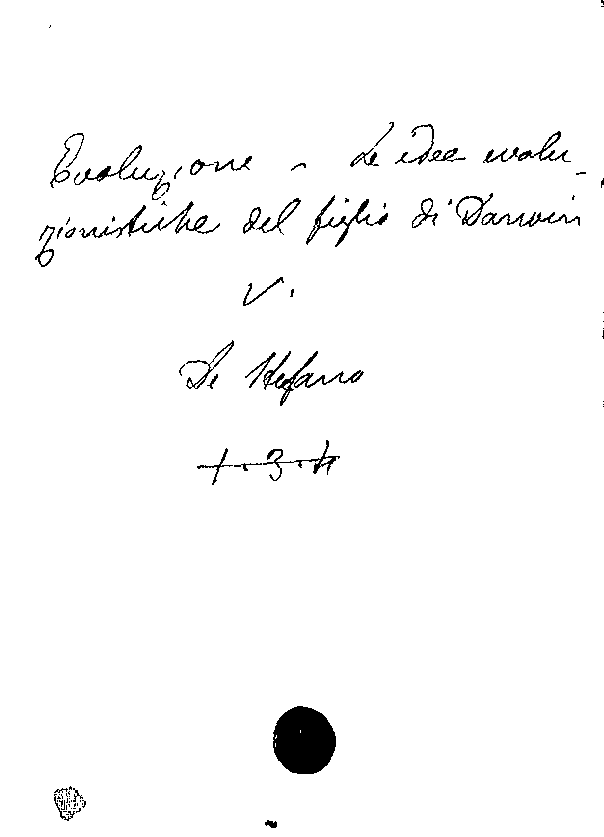 Evoluzione - Le idee evolu-
zionistiche del figlio di Darwin
V.
De Stefano
1.3.4